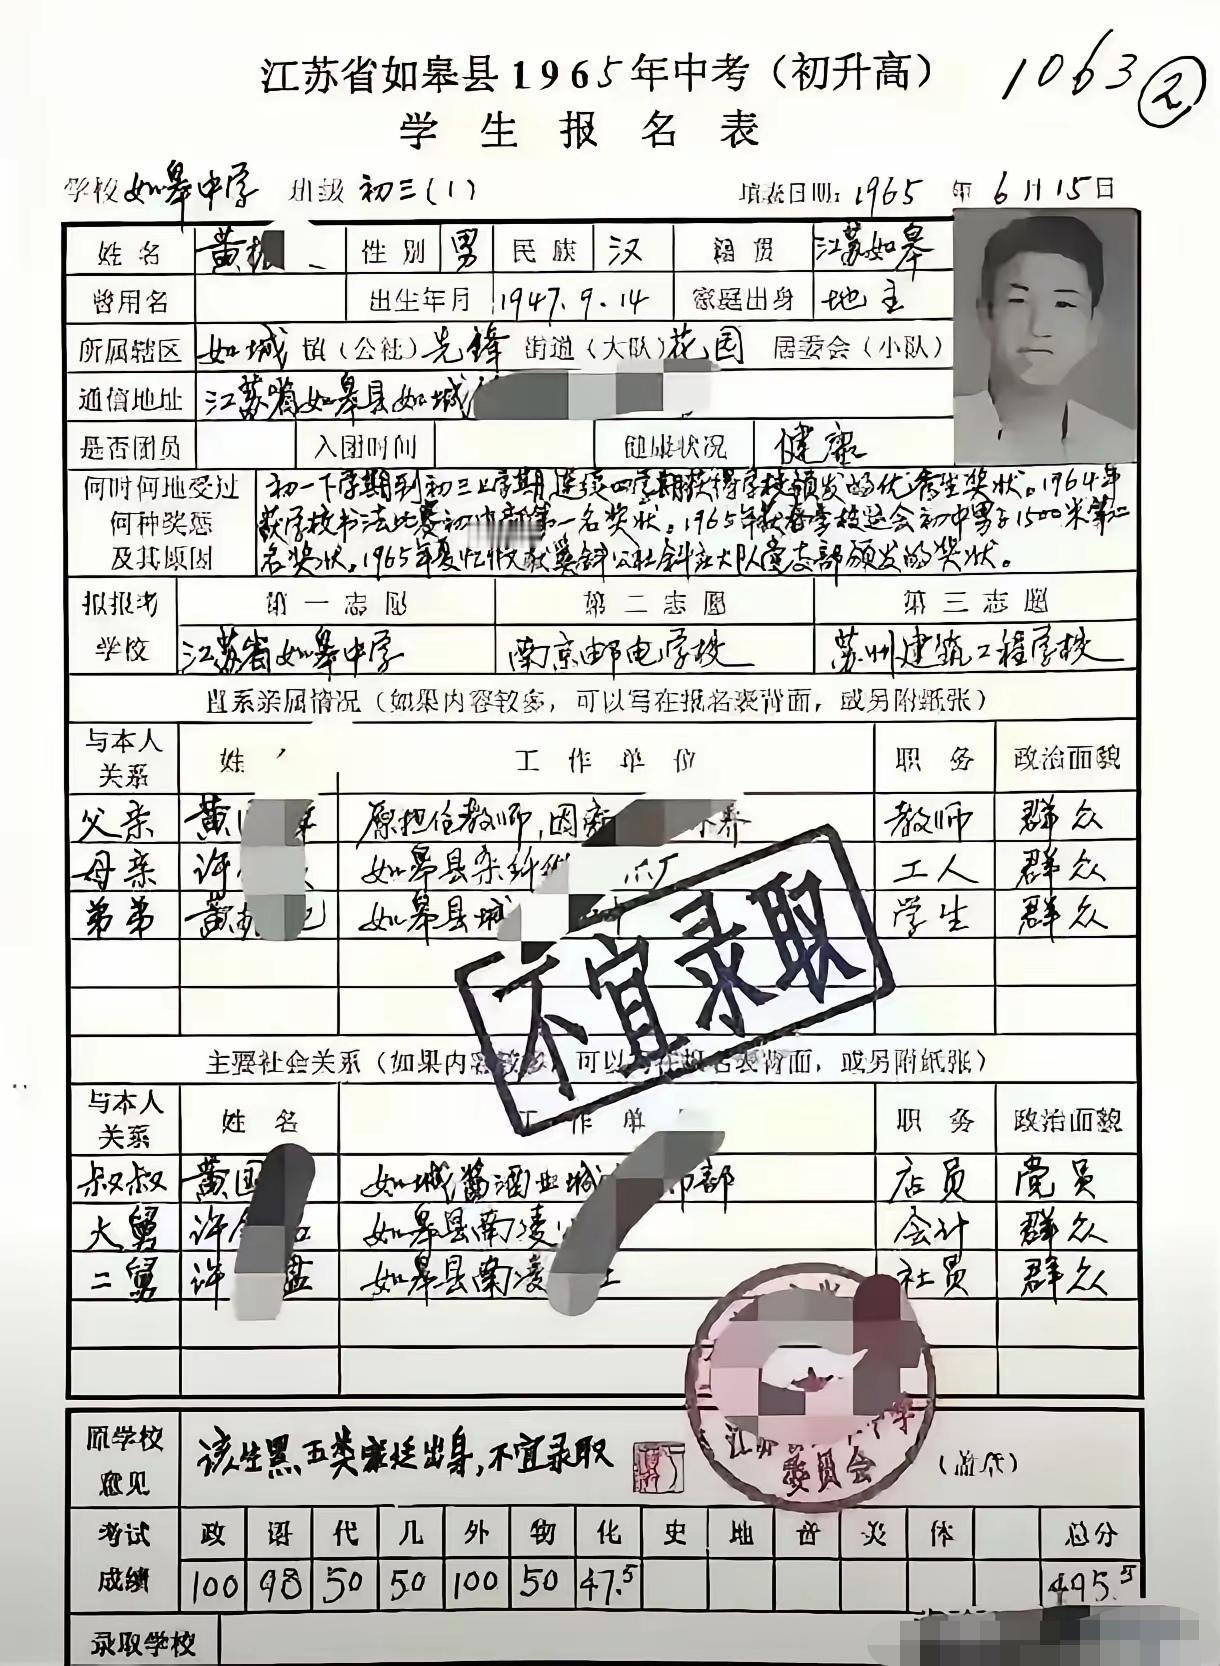 江苏省如皋县1965年中考（初升高）
1063 ②
学生报名表
学校 如皋中学 班级 初三(1) 填表日期：1965年6月15日
姓名 黄振 性别 男 民族 汉 籍贯 江苏如皋
曾用名 出生年月 1947.9.14 家庭出身 地主
所属辖区 如城镇（公社）先锋街道（大队）花园居委会（小队）
通信地址 江苏省如皋县如城
是否团员 入团时间 健康状况 健康
何时何地受过 初一下学期到初三上学期连续四学期获得学校颁发的优秀生奖状。1964年
何种奖惩 获学校书法比赛初中部第一名奖状。1965年获春学校运会初中男子1500米第二
及其原因 名奖状。1965年夏忙获公社大队党支部颁发的奖状。
拟报考 第一志愿 第二志愿 第三志愿
学校 江苏省如皋中学 南京邮电学校 苏州建筑工程学校
直系亲属情况（如果内容较多，可以写在报名表背面，或另附纸张）
与本人关系 姓 工作单位 职务 政治面貌
父亲 黄 原担任教师，因 养 教师 群众
母亲 许 如皋县 厂 工人 群众
弟弟 黄 如皋县城 学生 群众
不宜录取
主要社会关系（如果内容较多，可以写在报名表背面，或另附纸张）
与本人关系 姓名 工作单 职务 政治面貌
叔叔 黄国 如城酱酒业城 部 店员 党员
大舅 许 如皋县南凌 会计 群众
二舅 许 盘 如皋县南凌 社员 群众
原学校意见 该生黑五类家庭出身，不宜录取 （盖章）
委员会
考试 政 语 代 几 外 物 化 史 地 音 美 体 总分
成绩 100 98 50 50 100 50 47.5 495.5
录取学校